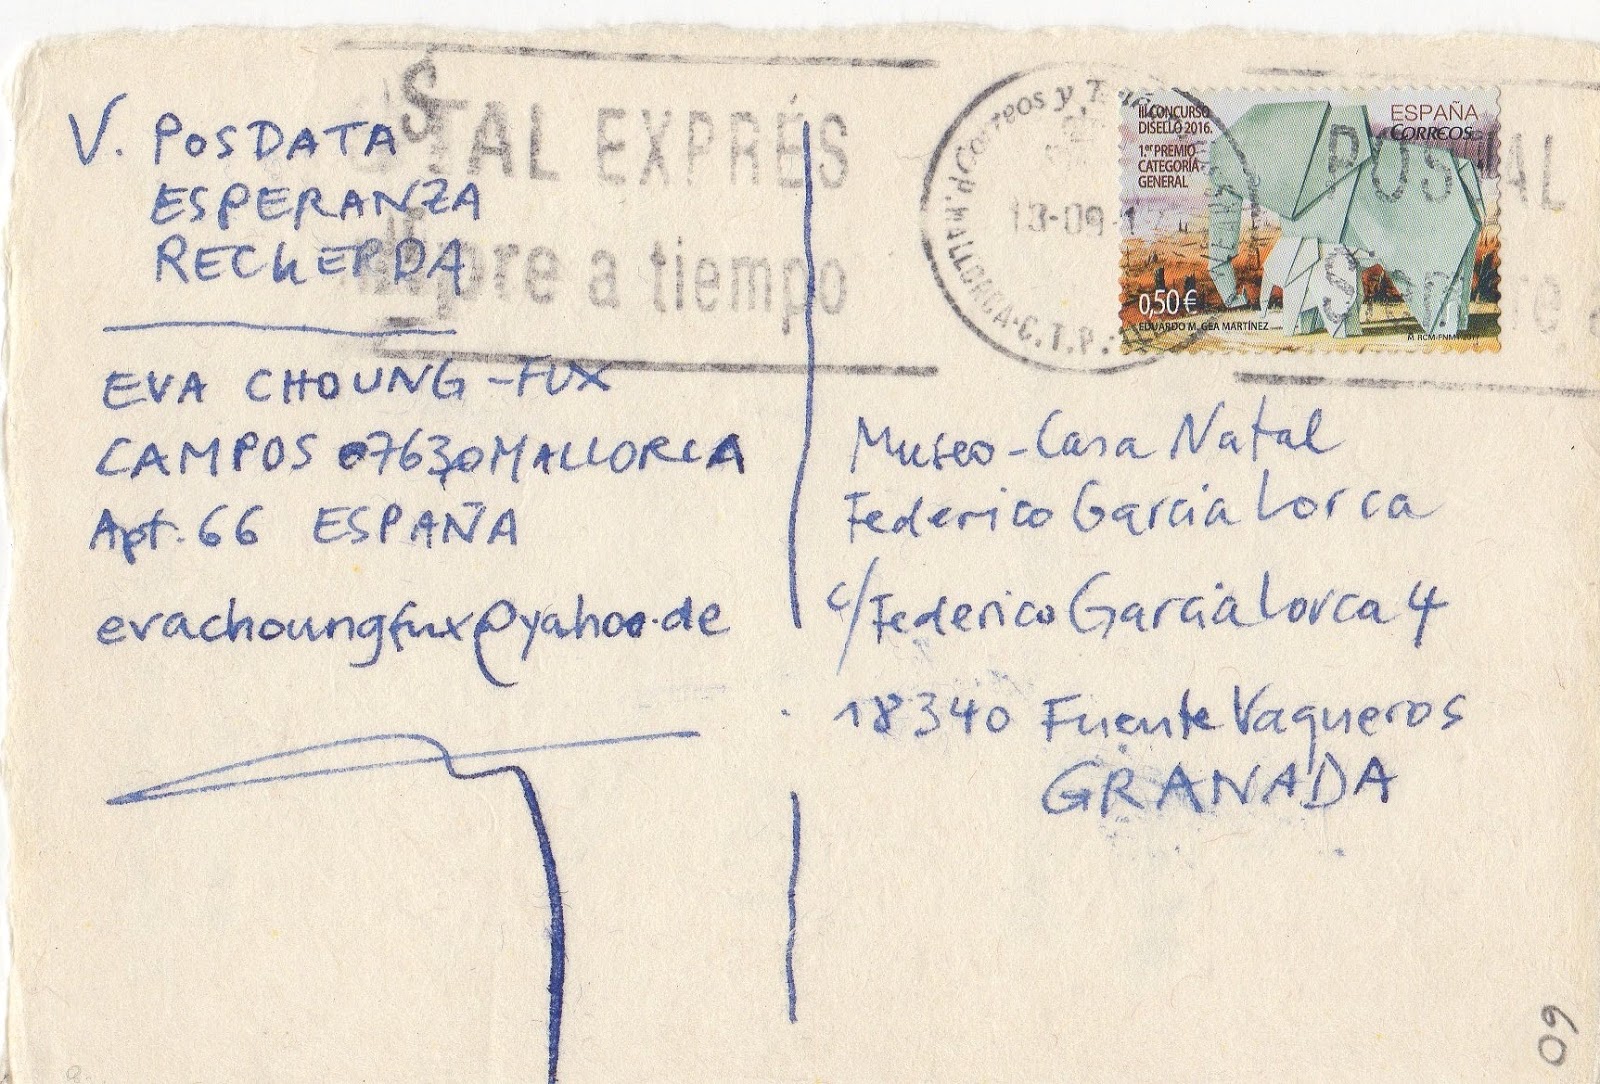 V. POSDATA
ESPERANZA
RECUERDA
EVA CHOUNG-FUX
CAMPOS 07630 MALLORCA
Apt. 66 ESPAÑA
evachoungfux@yahoo.de
STAL EXPRÉS
pre a tiempo
Correos y
P. MALLORCA-C.T.P.
13-09-1
III CONCURSO
DISELLO 2016.
1.er PREMIO
CATEGORÍA
GENERAL
ESPAÑA
CORREOS
0,50 €
EDUARDO M. GEA MARTÍNEZ
RCM-FNMT-2017
POSTAL
Museo-Casa Natal
Federico Garcia Lorca
c/Federico Garcia Lorca 4
18340 Fuente Vaqueros
GRANADA
09